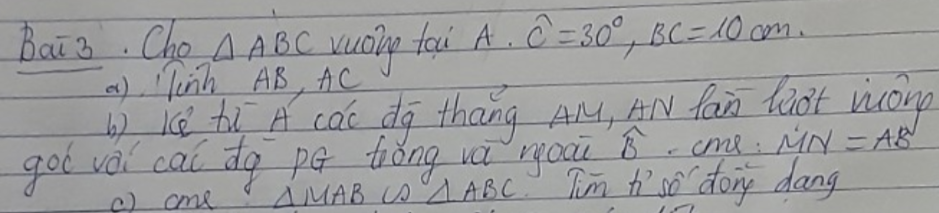 Bài 3. Cho △ ABC vuông tại A. Ĉ = 30°, BC = 10 cm.
a) Tính AB, AC
b) Kẻ từ A các đg thẳng AM, AN lần lượt vuông
góc với các đg PG trong và ngoài B̂. cmr: MN = AB
c) cmr △MAB ∽ △ABC. Tìm tỉ số đồng dạng